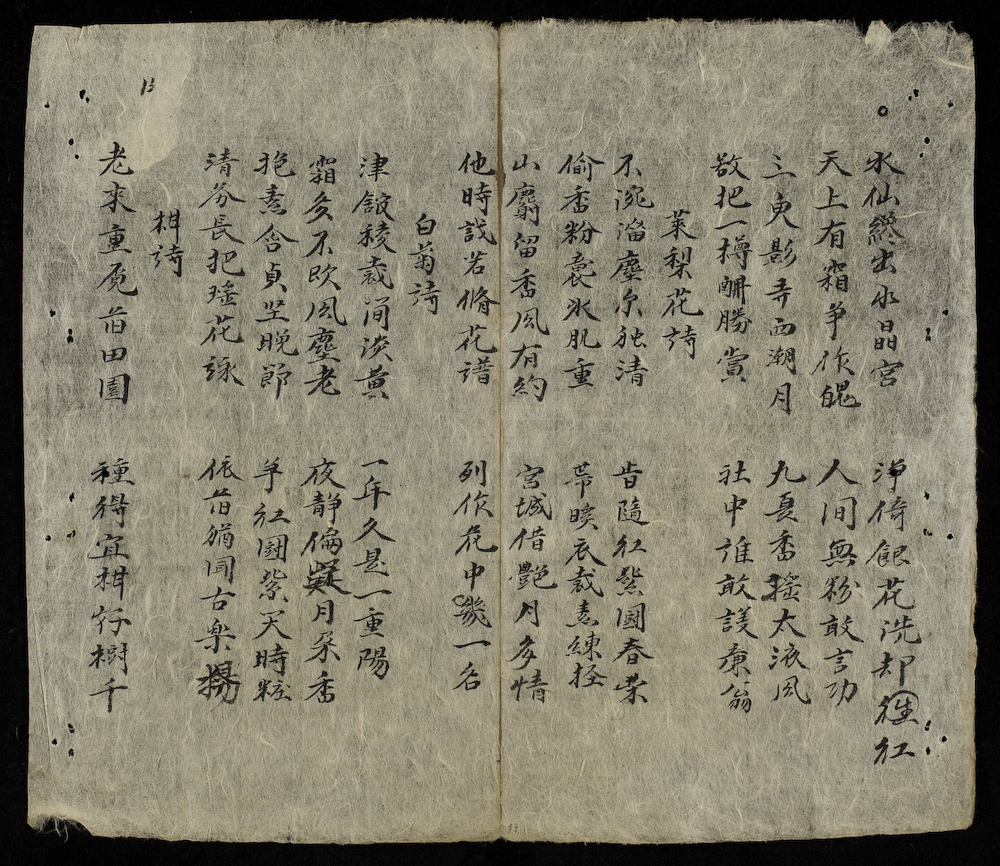 水仙纔出水晶宮 淨倚銀花洗却徃紅
天上有霜争作媲 人间無粉敢言功
三更影寺西潮月 九夏香摇太液風
敬把一樽酬勝賞 社中誰敢護廉翁
茉梨花詩
不涴淄塵尔独清 昔隨紅紫國春榮
偷香粉裛氷肌重 帶暎衣裁素練輕
山麝留香風有約 宮城借艷月多情
他時試若脩花譜 列作花中幾一名
白菊詩
津館移栽间淡黄 一年久是一重陽
霜多不欧風塵老 夜静偏凝月朶香
抱素含貞坚晚節 争紅國紫笑時粧
清芬長把瑤花詠 依旧猶同古樂揚
柑詩
老来重覔旧田園 種得宜柑樹千
13